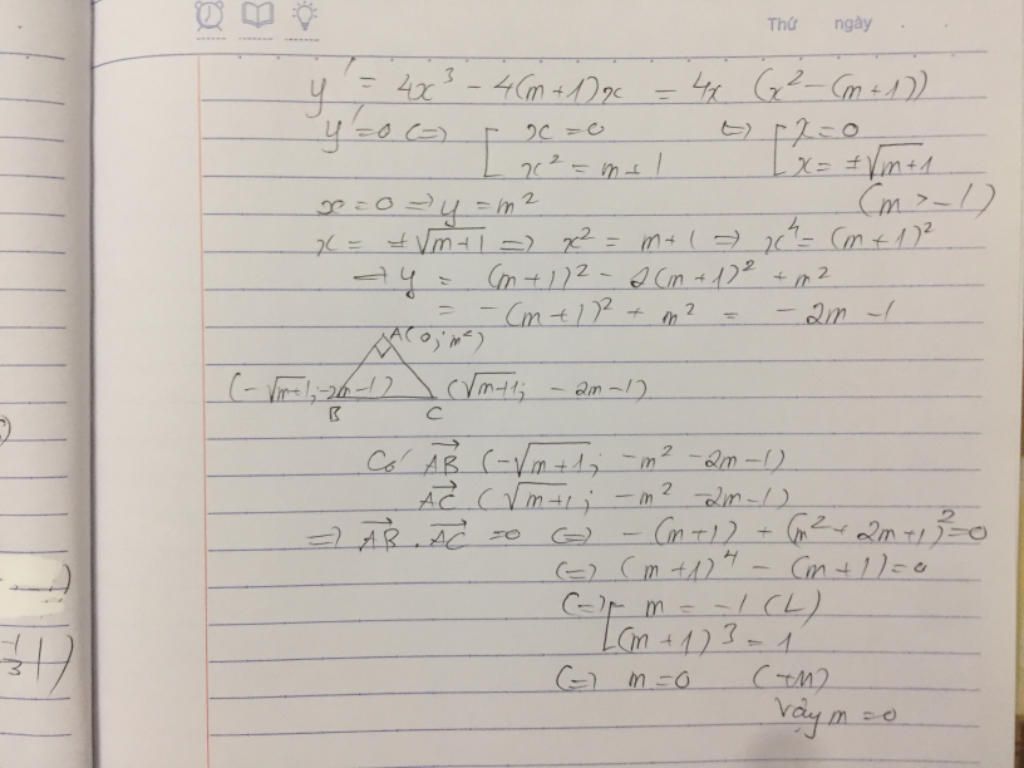 Thứ ngày
y' = 4x³ - 4(m+1)x = 4x (x² - (m+1))
y' = 0 (=) [ x = 0 (=) [ x = 0
x² = m+1 x = ±√m+1
x = 0 => y = m² (m > -1)
x = ±√m+1 => x² = m+1 => x⁴ = (m+1)²
=> y = (m+1)² - 2(m+1)² + m²
= -(m+1)² + m² = -2m - 1
A(0; m²)
(-√m+1; -2m-1) (√m+1; -2m-1)
B C
Có AB (-√m+1; -m² -2m-1)
AC (√m+1; -m² -2m-1)
=> AB . AC = 0 (=) -(m+1) + (m² + 2m+1)² = 0
(=) (m+1)⁴ - (m+1) = 0
(=) [ m = -1 (L)
(m+1)³ = 1
(=) m = 0 (TM)
Vậy m = 0